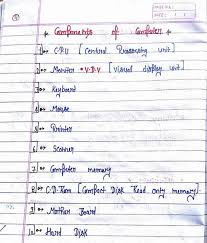 * Components of Computer *
1 CPU [Central Processing unit]
2 Monitor • V.D.U [Visual display unit]
3 Keyboard
4 Mouse
5 Printer
6 Scanner
7 Computer memory
8 C.D. Rom [Compact Disk Read only memory]
9 Mother Board
10 Hard Disk